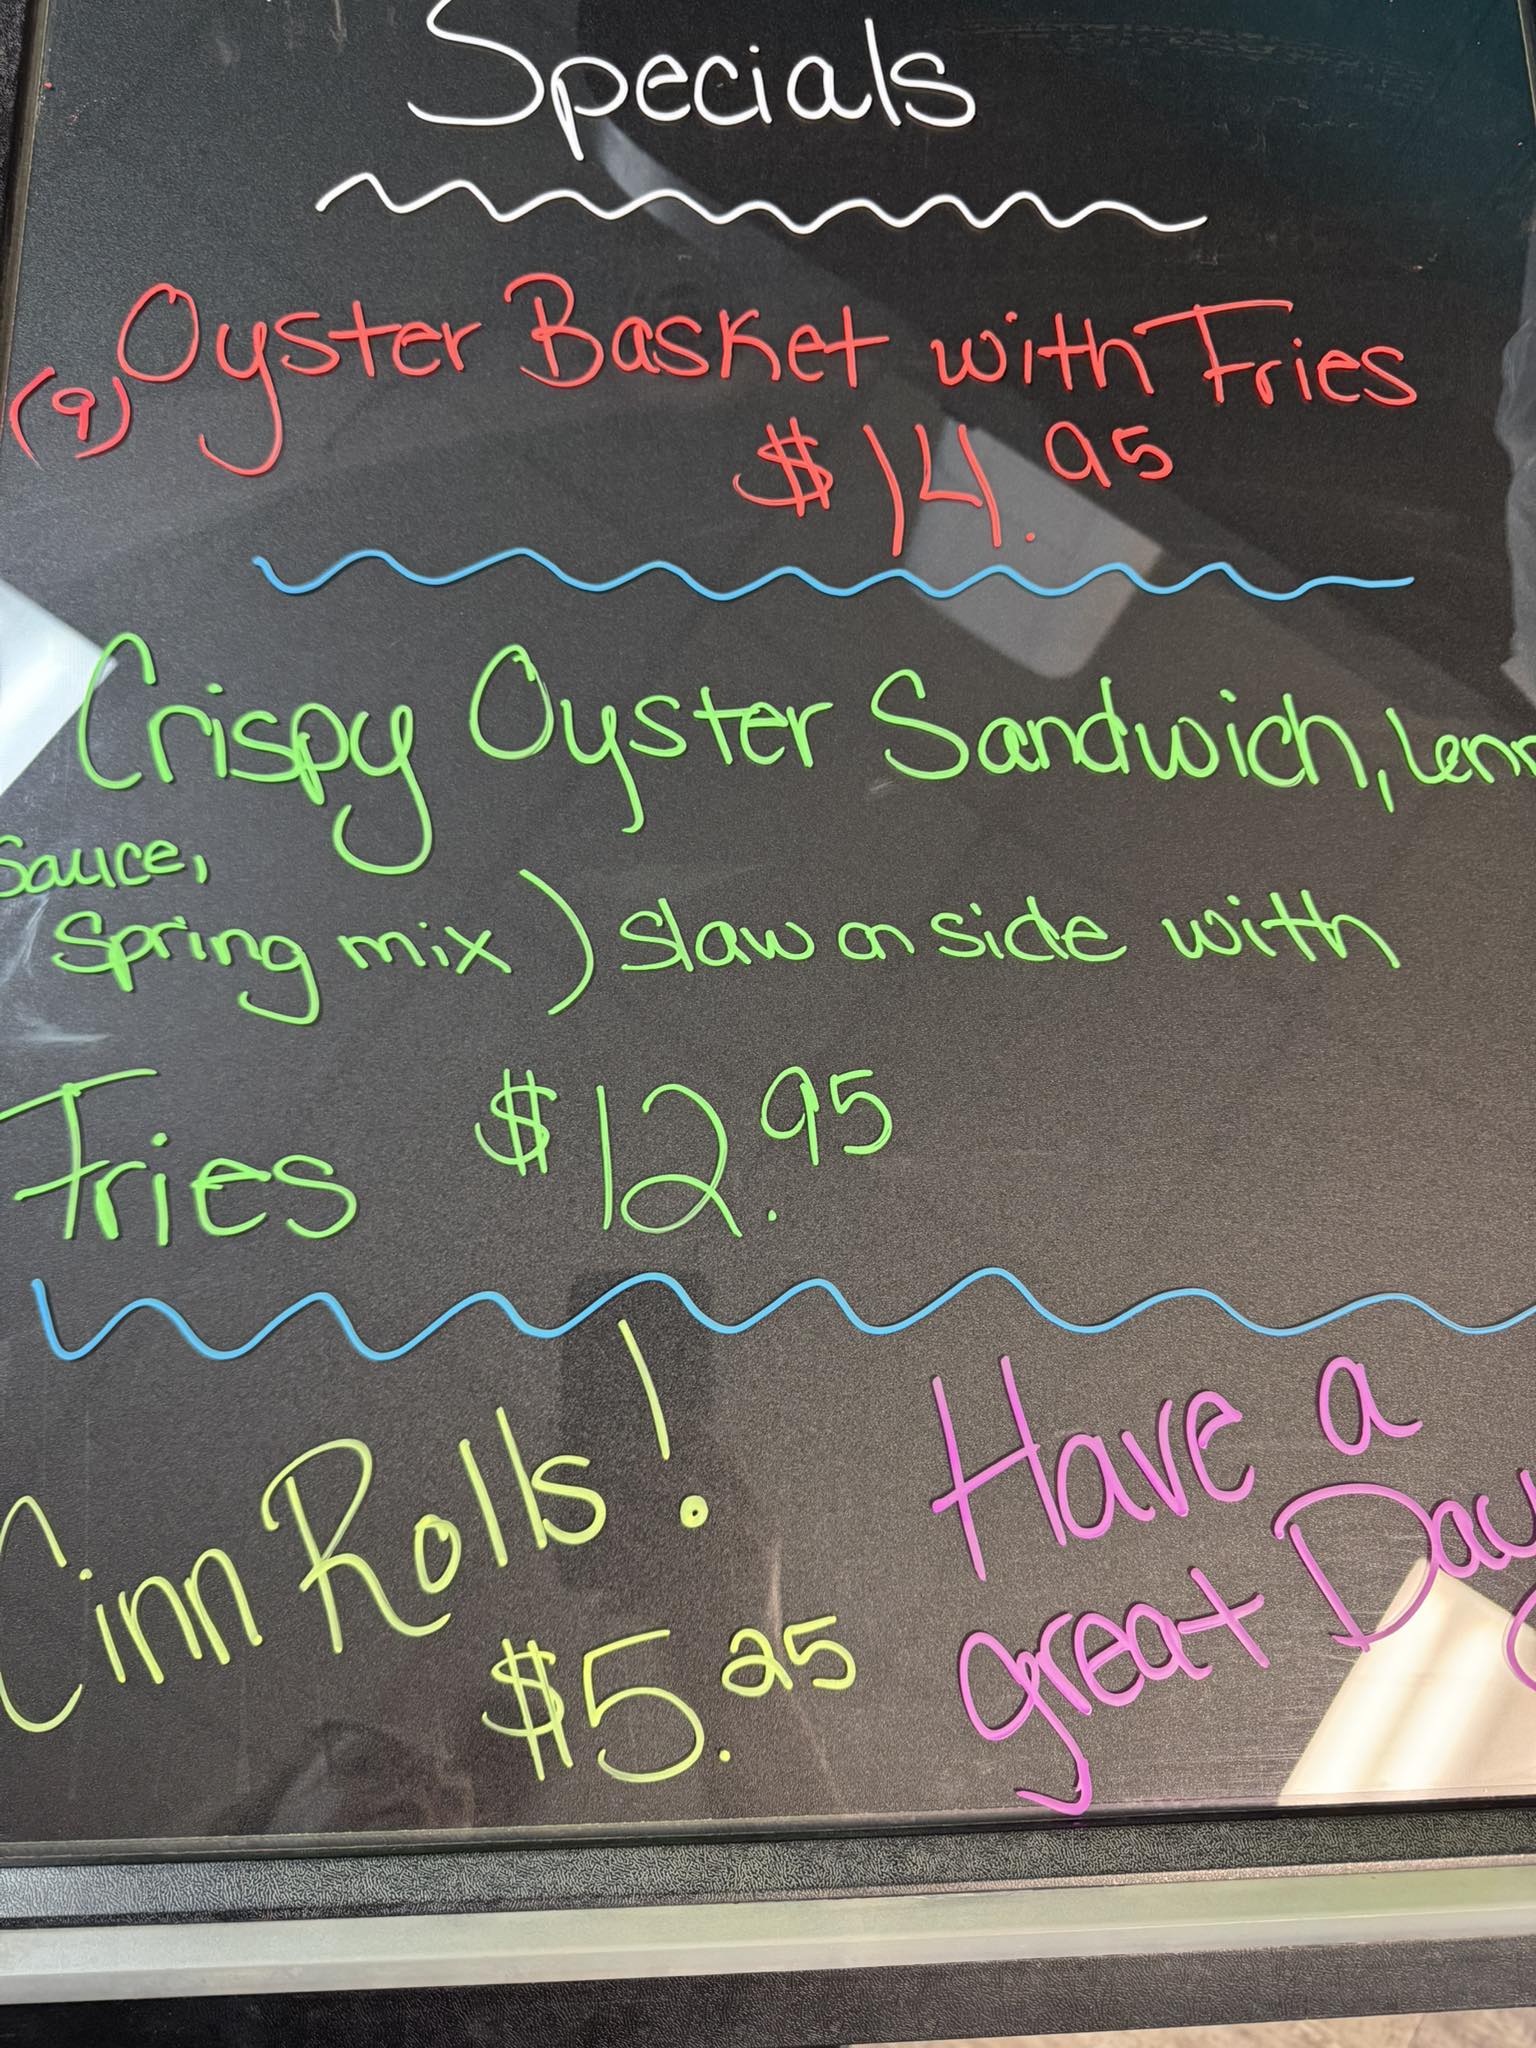 Specials
(9) Oyster Basket with Fries
$14.95
Crispy Oyster Sandwich,
sauce,
Spring mix) slaw on side with
Fries $12.95
Cinn Rolls!
$5.25
Have a
great Day